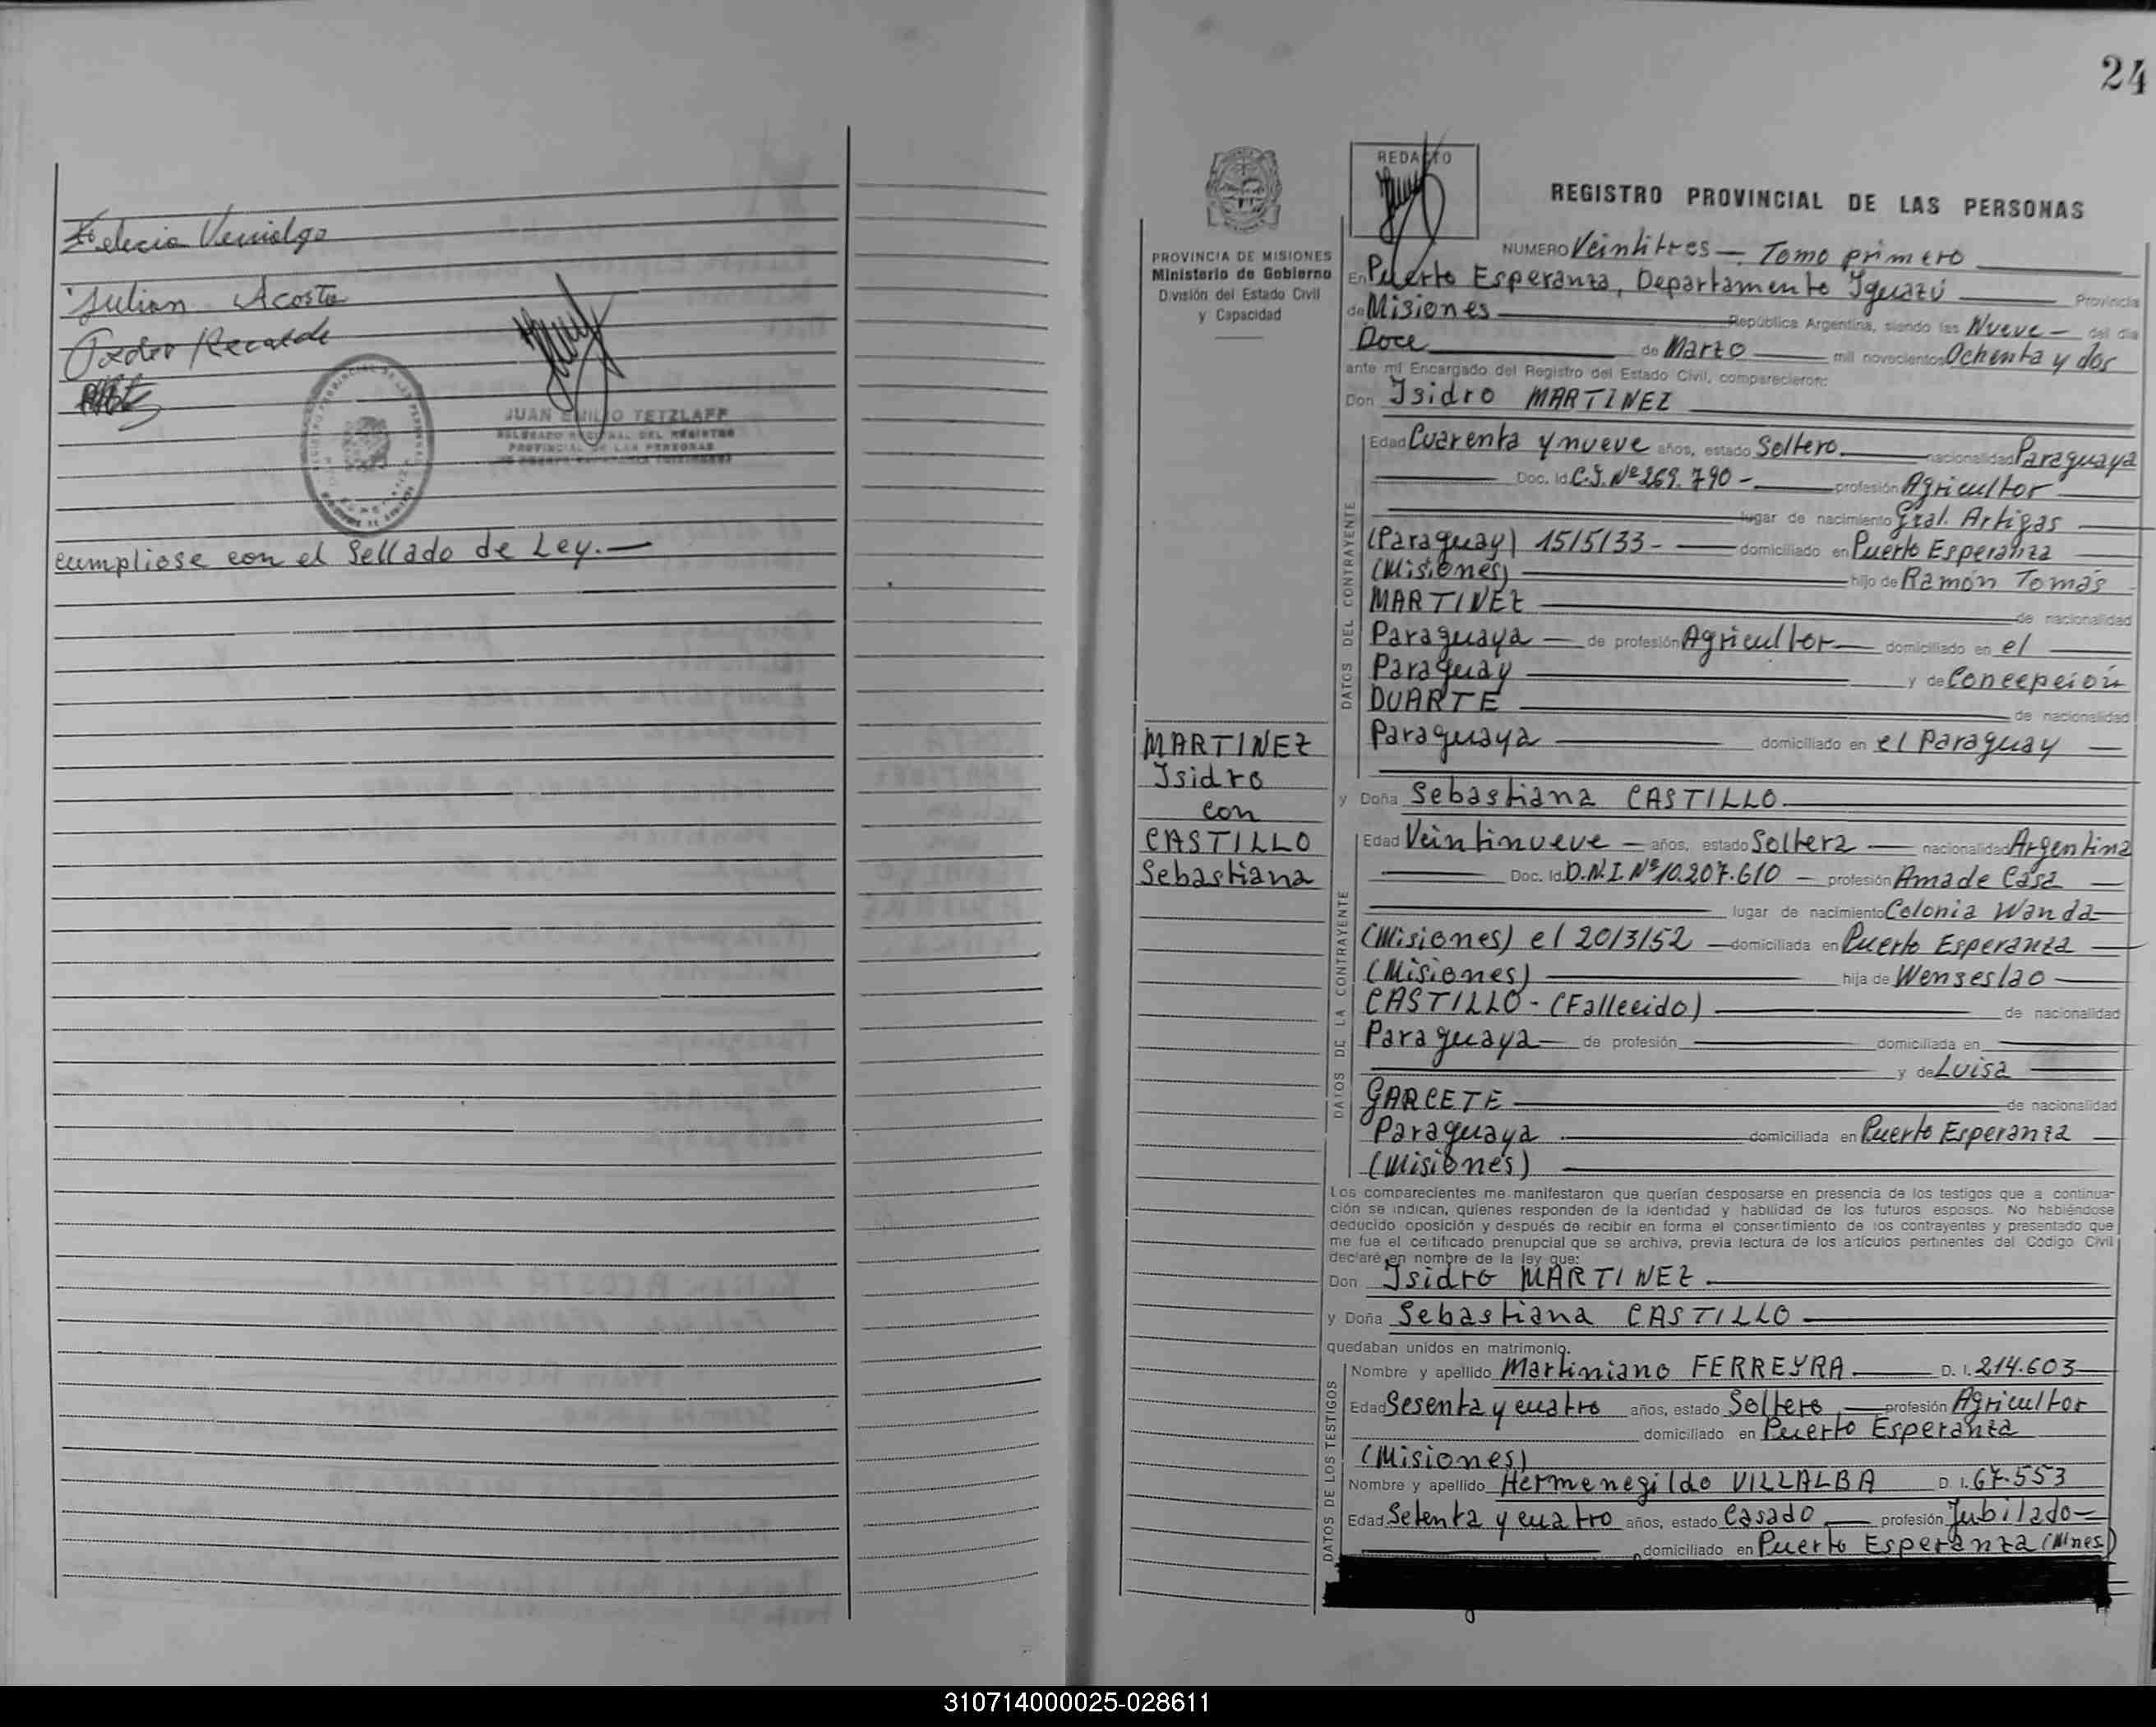 Felecia Verialgo
Julian Acosta
Pedro Recalde
JUAN EMILIO TETZLAFF
DELEGADO REGIONAL DEL REGISTRO
PROVINCIAL DE LAS PERSONAS
cumpliose con el Sellado de Ley.—
24
REDACTO
REGISTRO PROVINCIAL DE LAS PERSONAS
PROVINCIA DE MISIONES
Ministerio de Gobierno
División del Estado Civil
y Capacidad
MARTINEZ
Isidro
con
CASTILLO
Sebastiana
NUMERO Veintitres — Tomo primero
En Puerto Esperanza, Departamento Iguazú Provincia
de Misiones República Argentina, siendo las Nueve — del día
Doce de Marzo mil novecientos Ochenta y dos
ante mí Encargado del Registro del Estado Civil, comparecieron:
Don Isidro MARTINEZ
DATOS DEL CONTRAYENTE
Edad Cuarenta y nueve años, estado Soltero nacionalidad Paraguaya
Doc. Id. C.I. Nº 269.790 - profesión Agricultor
lugar de nacimiento Gral. Artigas
(Paraguay) 15/5/33 - domiciliado en Puerto Esperanza
(Misiones) hijo de Ramón Tomás
MARTINEZ de nacionalidad
Paraguaya — de profesión Agricultor — domiciliado en el
Paraguay y de Concepción
DUARTE de nacionalidad
Paraguaya domiciliado en el Paraguay —
y Doña Sebastiana CASTILLO
DATOS DE LA CONTRAYENTE
Edad Veintinueve — años, estado Soltera — nacionalidad Argentina
Doc. Id. D.N.I. Nº 10.207.610 — profesión Ama de Casa —
lugar de nacimiento Colonia Wanda
(Misiones) el 20/3/52 — domiciliada en Puerto Esperanza
(Misiones) hija de Wenseslao
CASTILLO - (Fallecido) de nacionalidad
Paraguaya — de profesión domiciliada en
y de Luisa
GARCETE de nacionalidad
Paraguaya domiciliada en Puerto Esperanza
(Misiones)
Los comparecientes me manifestaron que querían desposarse en presencia de los testigos que a continua-
ción se indican, quienes responden de la identidad y habilidad de los futuros esposos. No habiéndose
deducido oposición y después de recibir en forma el consentimiento de los contrayentes y presentado que
me fue el certificado prenupcial que se archiva, previa lectura de los artículos pertinentes del Código Civil
declaré en nombre de la ley que:
Don Isidro MARTINEZ
y Doña Sebastiana CASTILLO
quedaban unidos en matrimonio.
DATOS DE LOS TESTIGOS
Nombre y apellido Martiniano FERREYRA D. I. 214.603
Edad Sesenta y cuatro años, estado Soltero profesión Agricultor
domiciliado en Puerto Esperanza
(Misiones)
Nombre y apellido Hermenegildo VILLALBA D. I. 67.553
Edad Setenta y cuatro años, estado Casado — profesión Jubilado
domiciliado en Puerto Esperanza (Mnes)
310714000025-028611